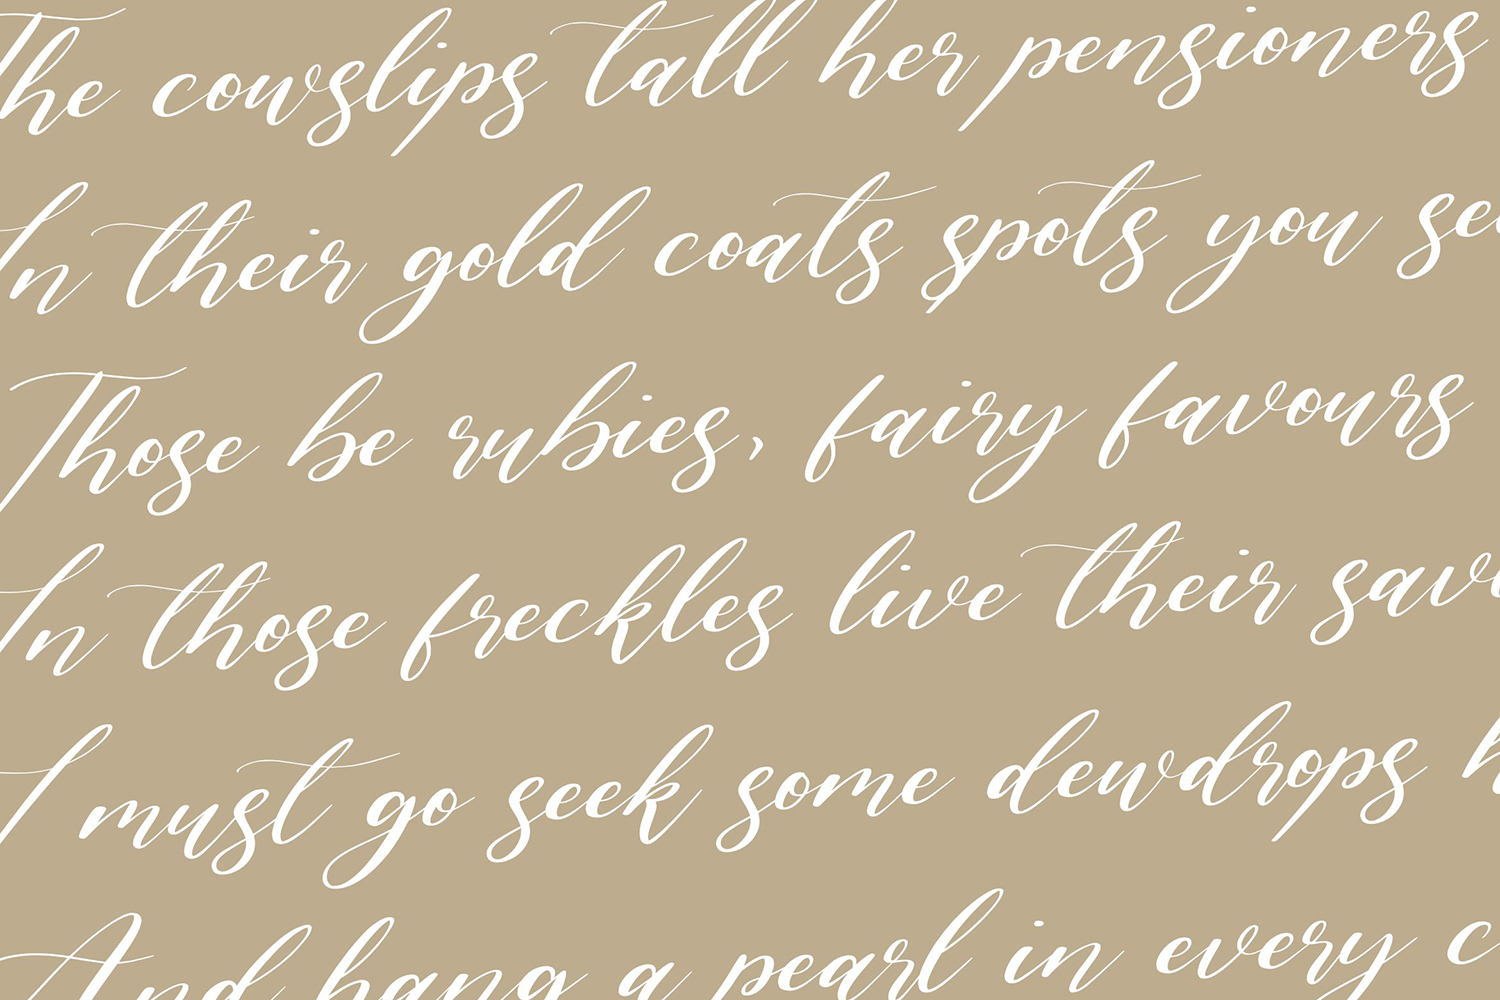 The cowslips tall her pensioners
In their gold coats spots you se
Those be rubies, fairy favours
In those freckles live their sav
I must go seek some dewdrops h
And hang a pearl in every c